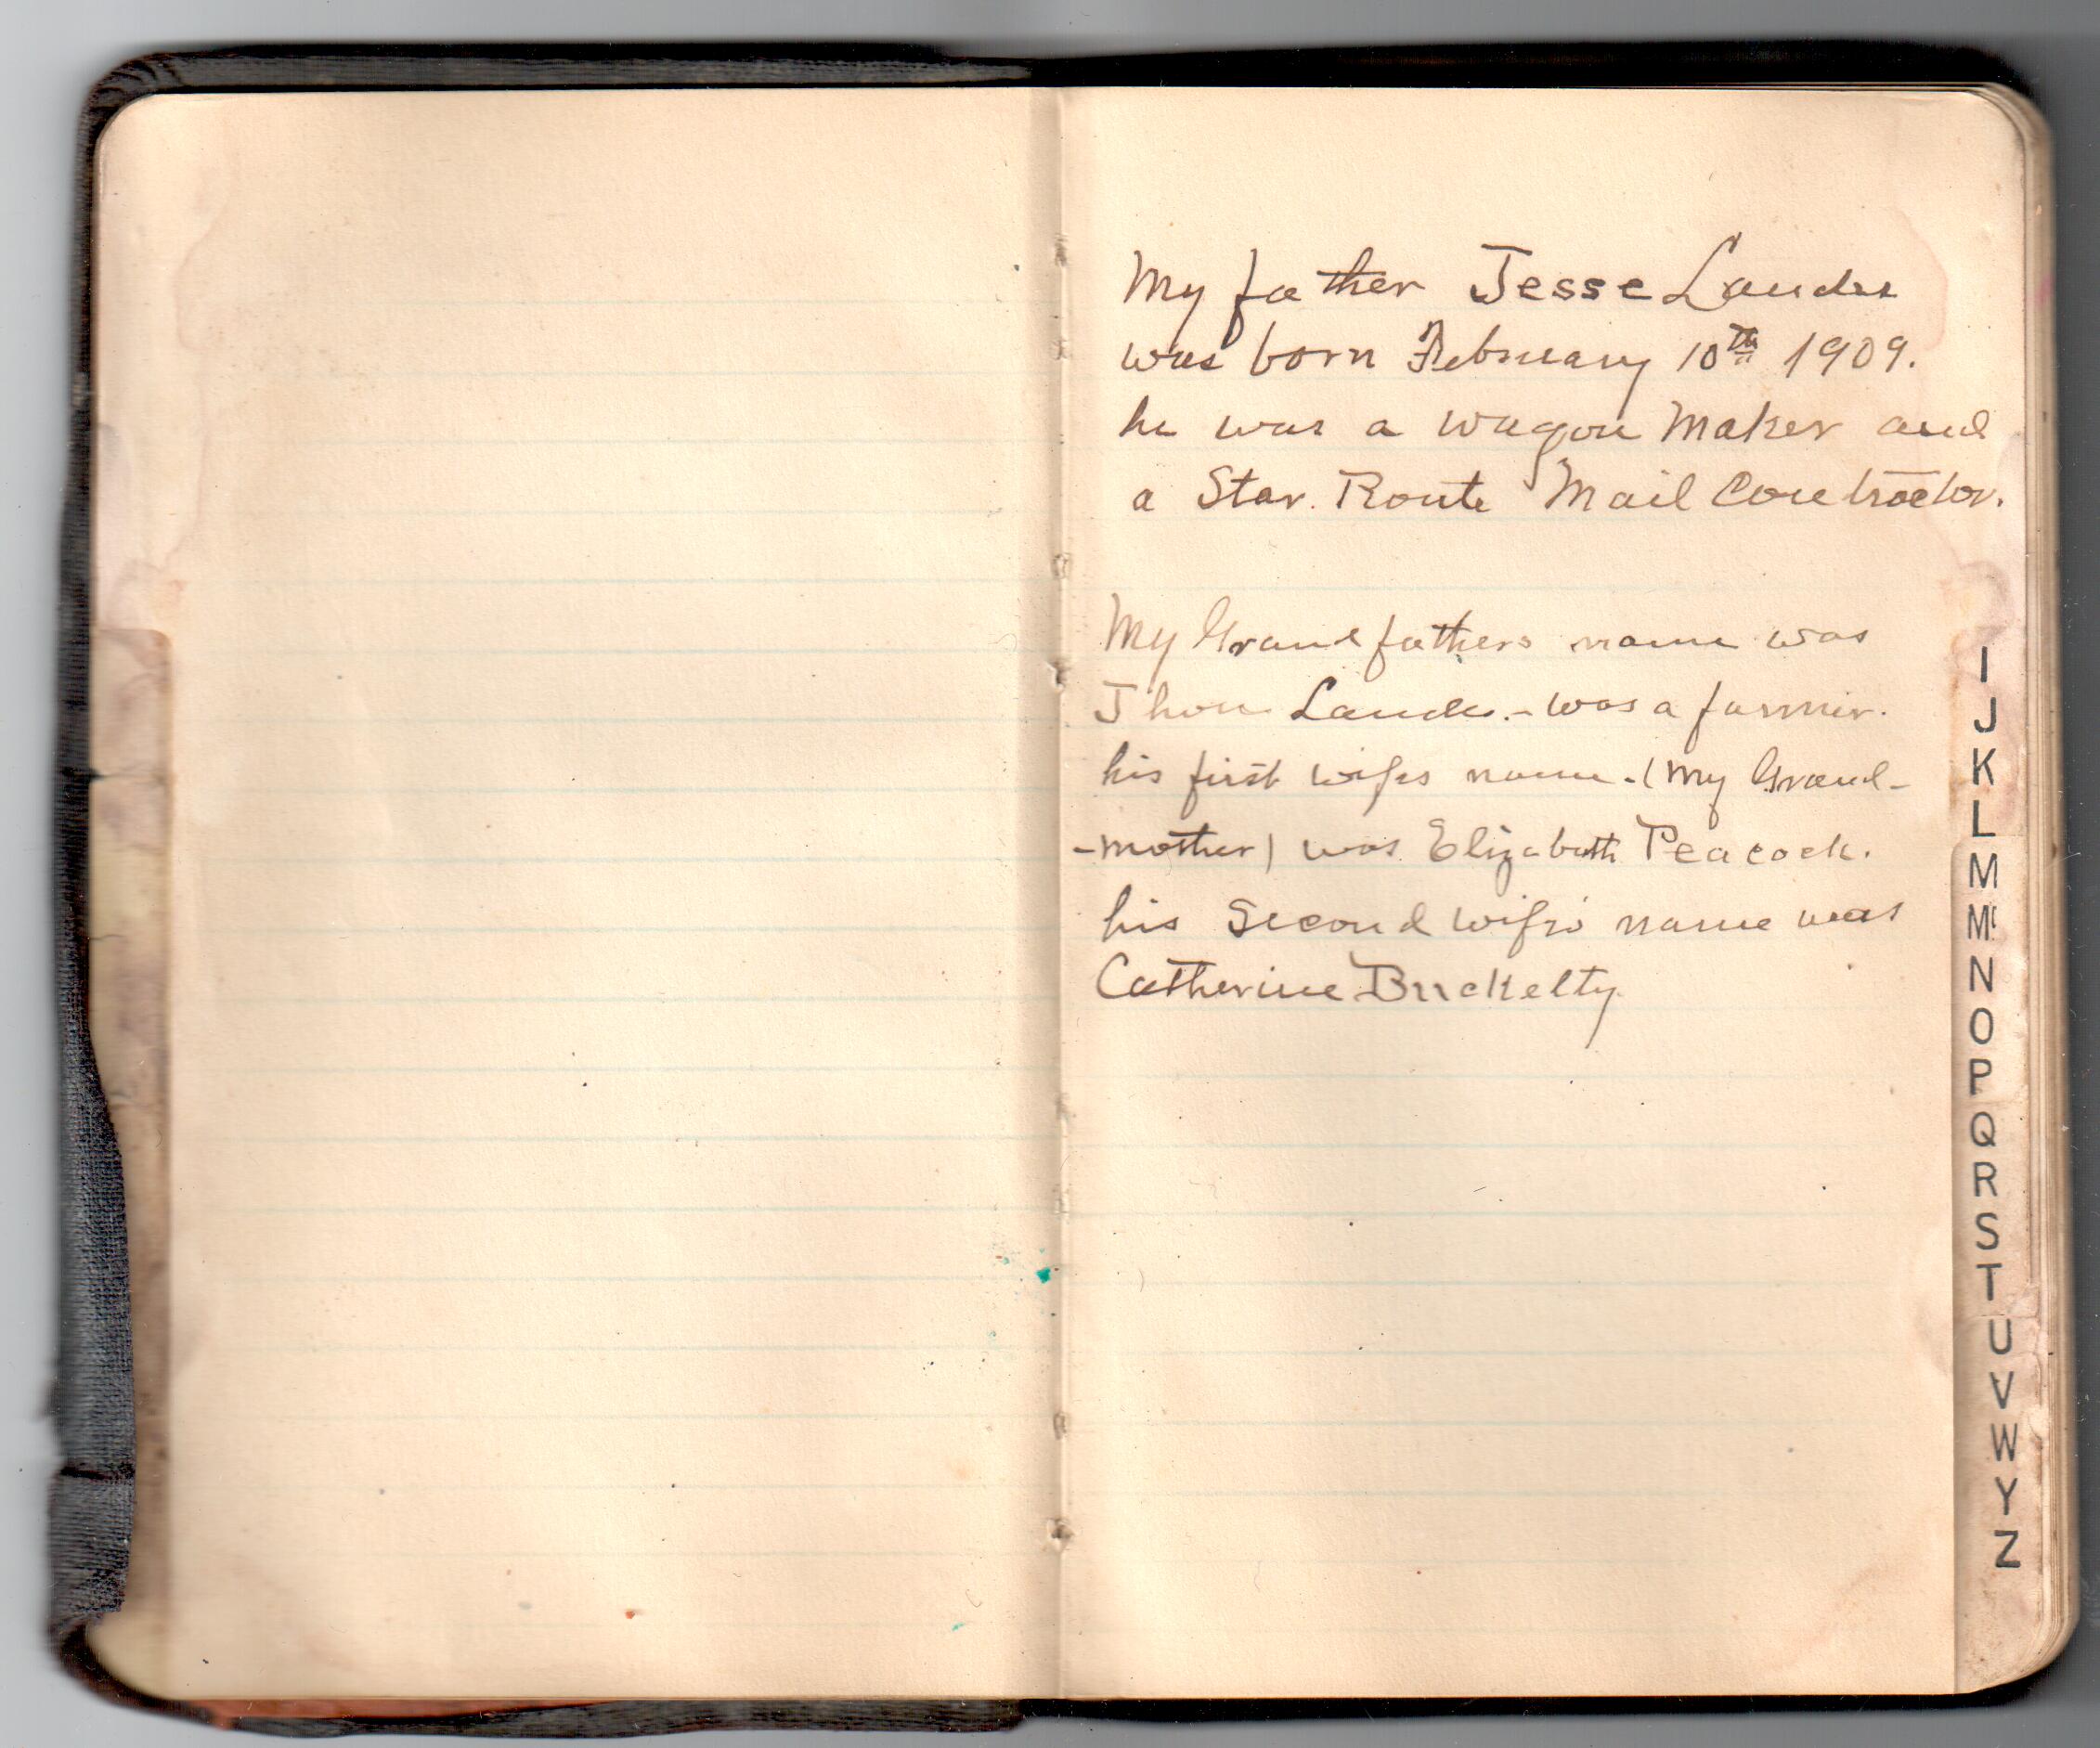 My father Jesse Landes
was born February 10th 1909.
he was a wagon Maker and
a Star. Route Mail Contractor.
My Grandfathers name was
Jhon Landes.- was a farmer.
his first wifes name.(My Grand-
-mother) was Elizabeth Peacock.
his Second wife's name was
Catherine Buckelty.
I
J
K
L
M
Mc
N
O
P
Q
R
S
T
U
V
W
Y
Z